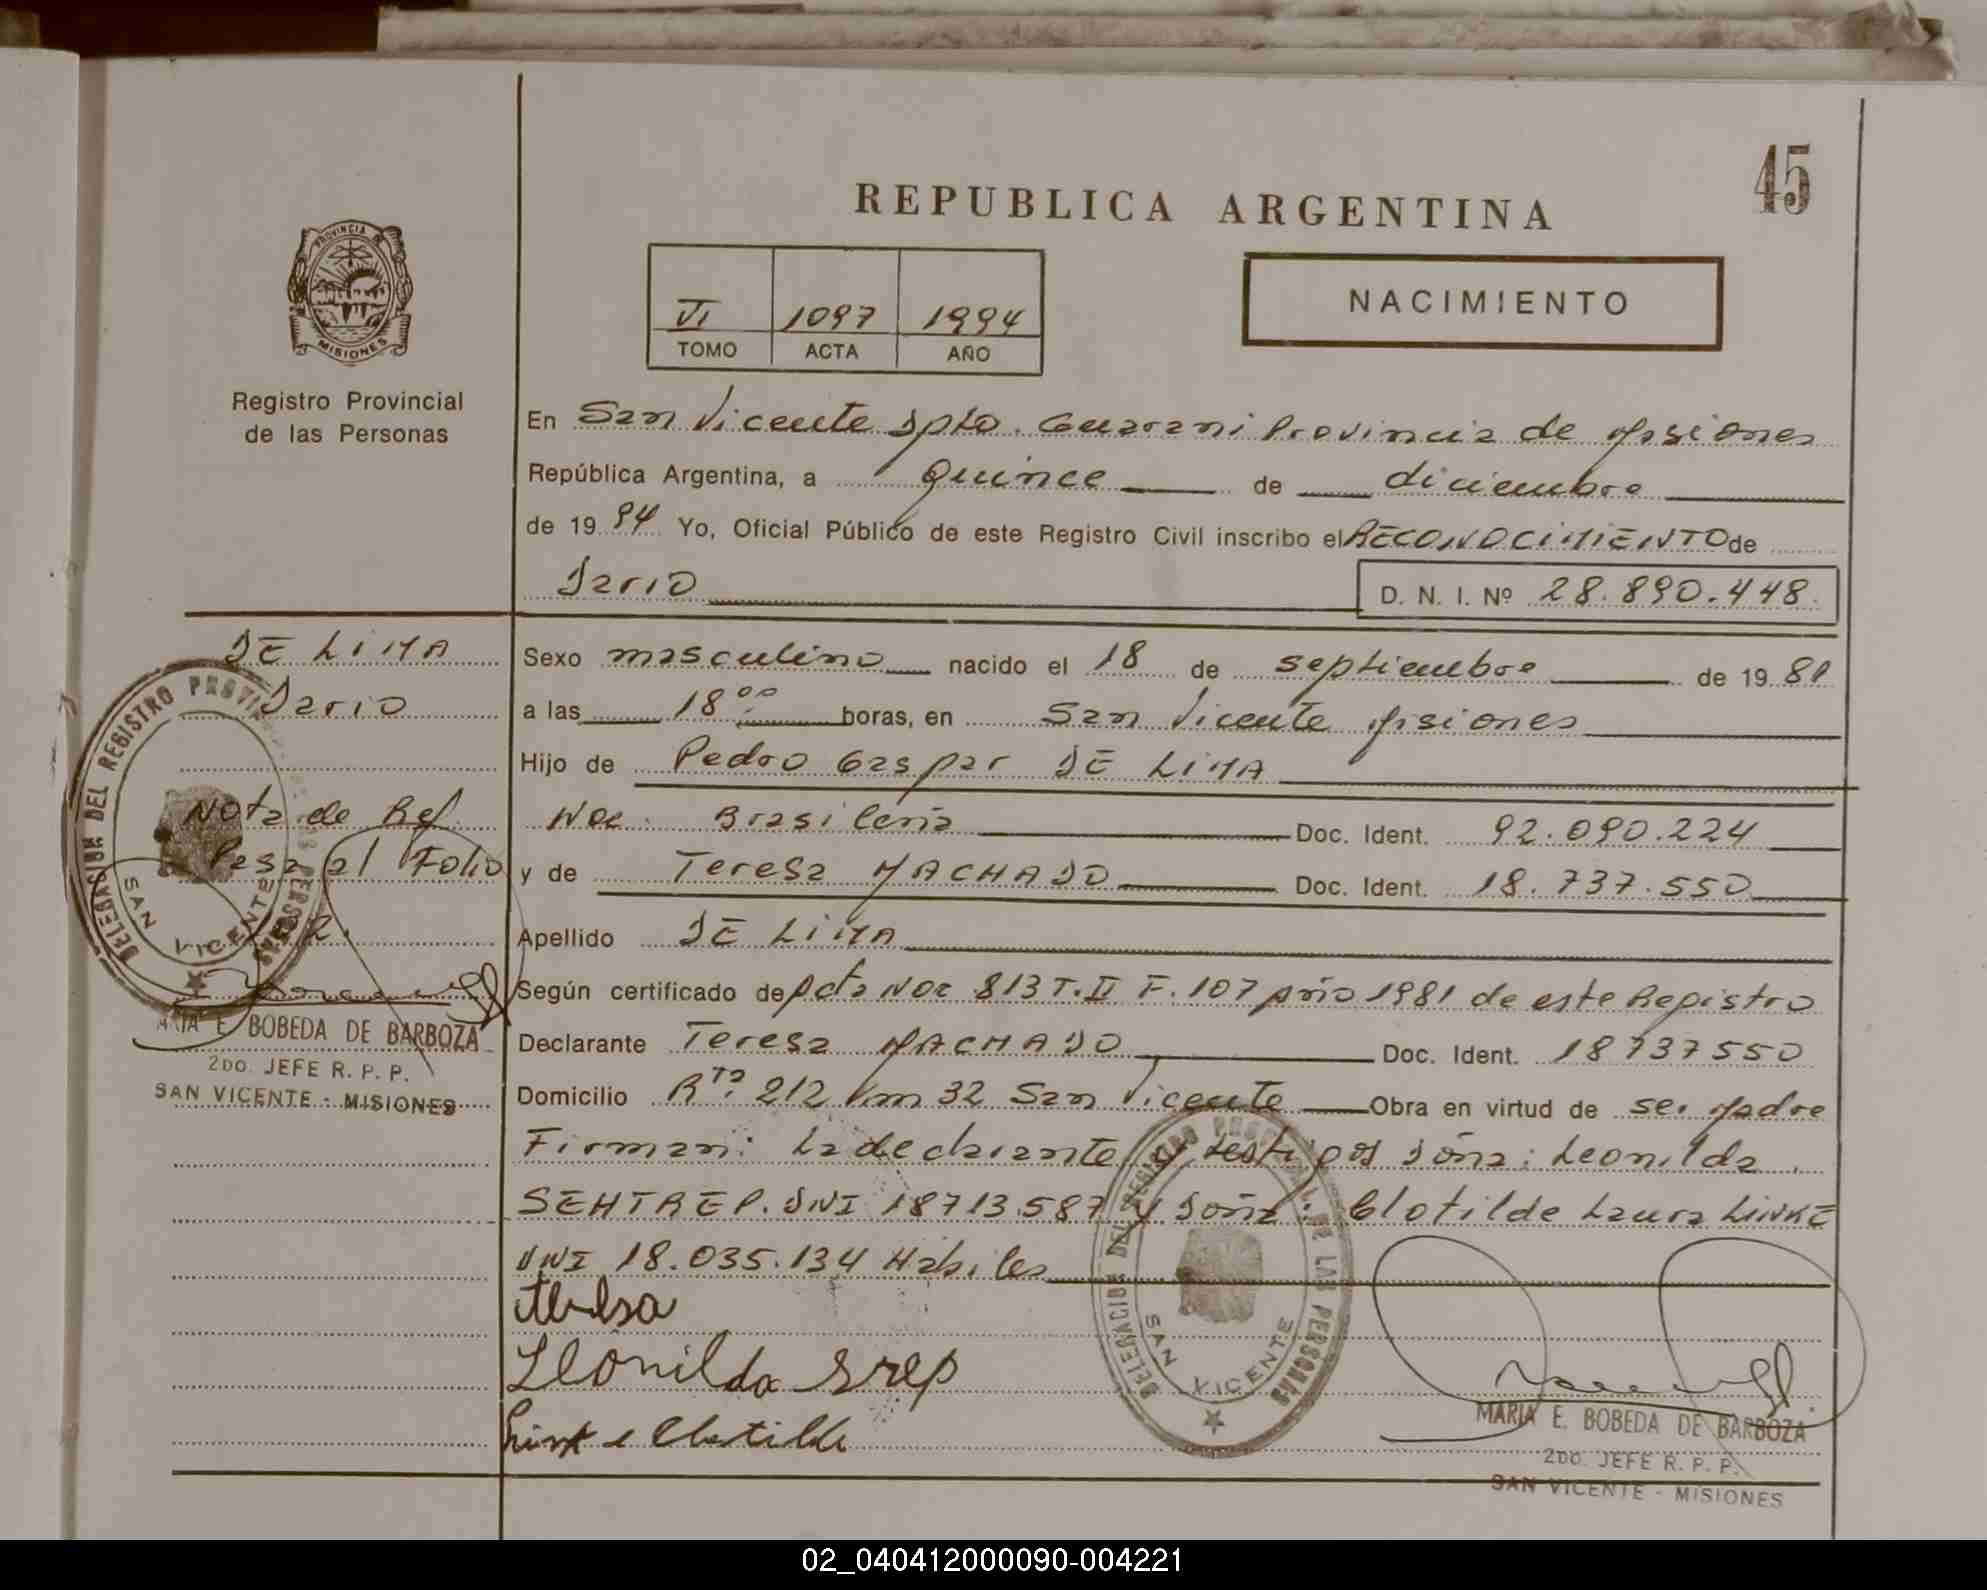 45
REPUBLICA ARGENTINA
PROVINCIA DE
MISIONES
VI 1097 1994
TOMO ACTA AÑO
NACIMIENTO
Registro Provincial
de las Personas
En San Vicente Dpto. Guarani Provincia de Misiones
República Argentina, a quince de diciembre
de 19 94 Yo, Oficial Público de este Registro Civil inscribo el RECONOCIMIENTO de
Dario D. N. I. Nº 28.890.448.
DE LIMA
Dario
Nota de Ref.
Pasa al Folio
DELEGACION DEL REGISTRO PROVINCIAL DE LAS PERSONAS
SAN VICENTE
MARIA E. BOBEDA DE BARBOZA
2DO. JEFE R. P. P.
SAN VICENTE - MISIONES
Sexo masculino nacido el 18 de septiembre de 19 81
a las 18 00 horas, en San Vicente Misiones
Hijo de Pedro Gaspar DE LIMA
Nac. Brasileña Doc. Ident. 92.090.224
y de Teresa MACHADO Doc. Ident. 18.737.550
Apellido DE LIMA
Según certificado de Acta Nac 813 T. II F. 107 Año 1981 de este Registro
Declarante Teresa MACHADO Doc. Ident. 18737550
Domicilio Rta. 212 Km 32 San Vicente Obra en virtud de ser Madre
Firman: La declarante y testigos Doña: Leonilda
SEHTREP. DNI 18713.587 y Doña: Clotilde Laura LINKE
DNI 18.035.134 Habiles
Leonilda Srep
Clotilde
DELEGACION DEL REGISTRO PROVINCIAL DE LAS PERSONAS
SAN VICENTE
MARIA E. BOBEDA DE BARBOZA
2DO. JEFE R. P. P.
SAN VICENTE - MISIONES
02_040412000090-004221